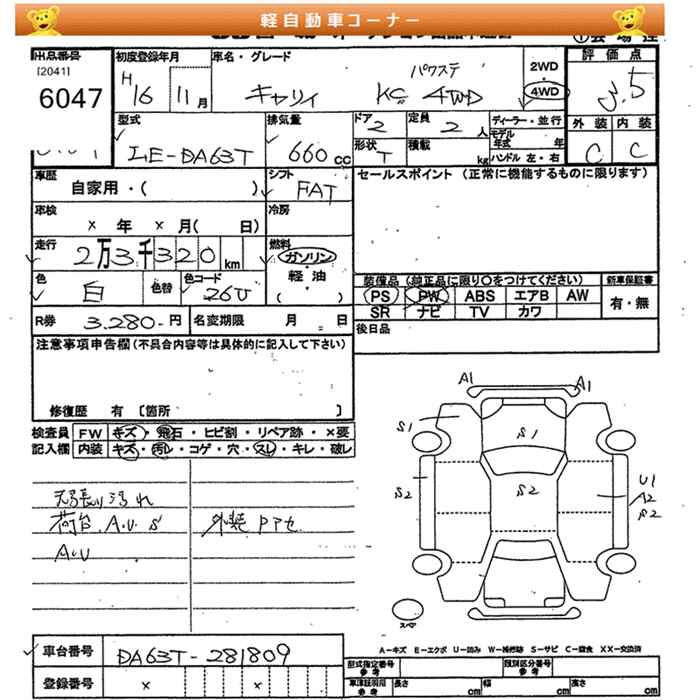 軽自動車コーナー
出品番号
[2041]
6047
初度登録年月
H16 11月
車名・グレード
パワステ
キャリィ KC 4WD
2WD
4WD
評価点
3.5
外装 内装
C C
型式
LE-DA63T
排気量
660cc
ドア
2
定員
2人
形状
T
積載
kg
ディーラー・並行
モデル
年式 年
ハンドル 左・右
車歴
自家用・( )
シフト
FAT
セールスポイント (正常に機能するものに限ります)
車検
× 年 × 月( 日)
冷房
走行
2万3千320km
燃料
ガソリン
軽油
( ・ )
色
白
色替
色コード
26U
装備品 (純正品に限り○をつけてください)
新車保証書
PS PW ABS エアB AW
SR ナビ TV カワ
有・無
R券 3,280-円
名変期限 月 日
後日品
注意事項申告欄(不具合内容等は具体的に記入して下さい)
修復歴 有 [箇所 ]
検査員
記入欄
FW キズ・飛石・ヒビ割・リペア跡・×要
内装 キズ・汚レ・コゲ・穴・スレ・キレ・破レ
天張り汚れ
荷台 A.U S
A.U
外装 Pアセ
A1
A1
S1
S1
S2
S2
U1
A2
S2
スペア
車台番号 DA63T-281809
登録番号 × ×
A-キズ E-エクボ U-凹み W-補修跡 S-サビ C-腐食 XX-交換済
型式指定番号
参考
類別区分番号
参考
車庫証明用
参考
長さ cm 幅 cm 高さ cm